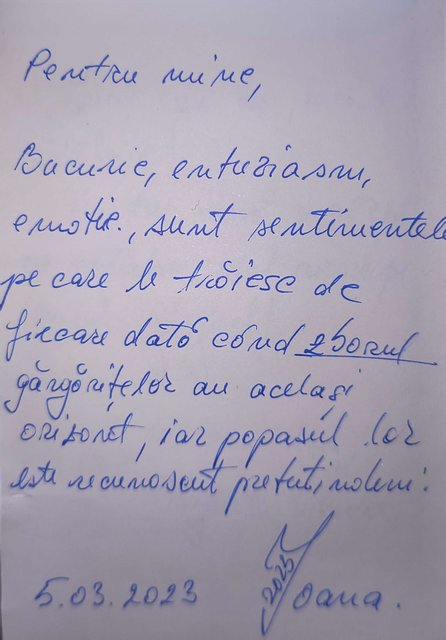 Pentru mine,
Bucurie, entuziasm,
emoție, sunt sentimentele
pe care le trăiesc de
fiecare dată când zborul
gărgărițelor au același
orizont, iar popasul lor
este recunoscut pretutindeni!
5.03.2023 2023 Ioana.